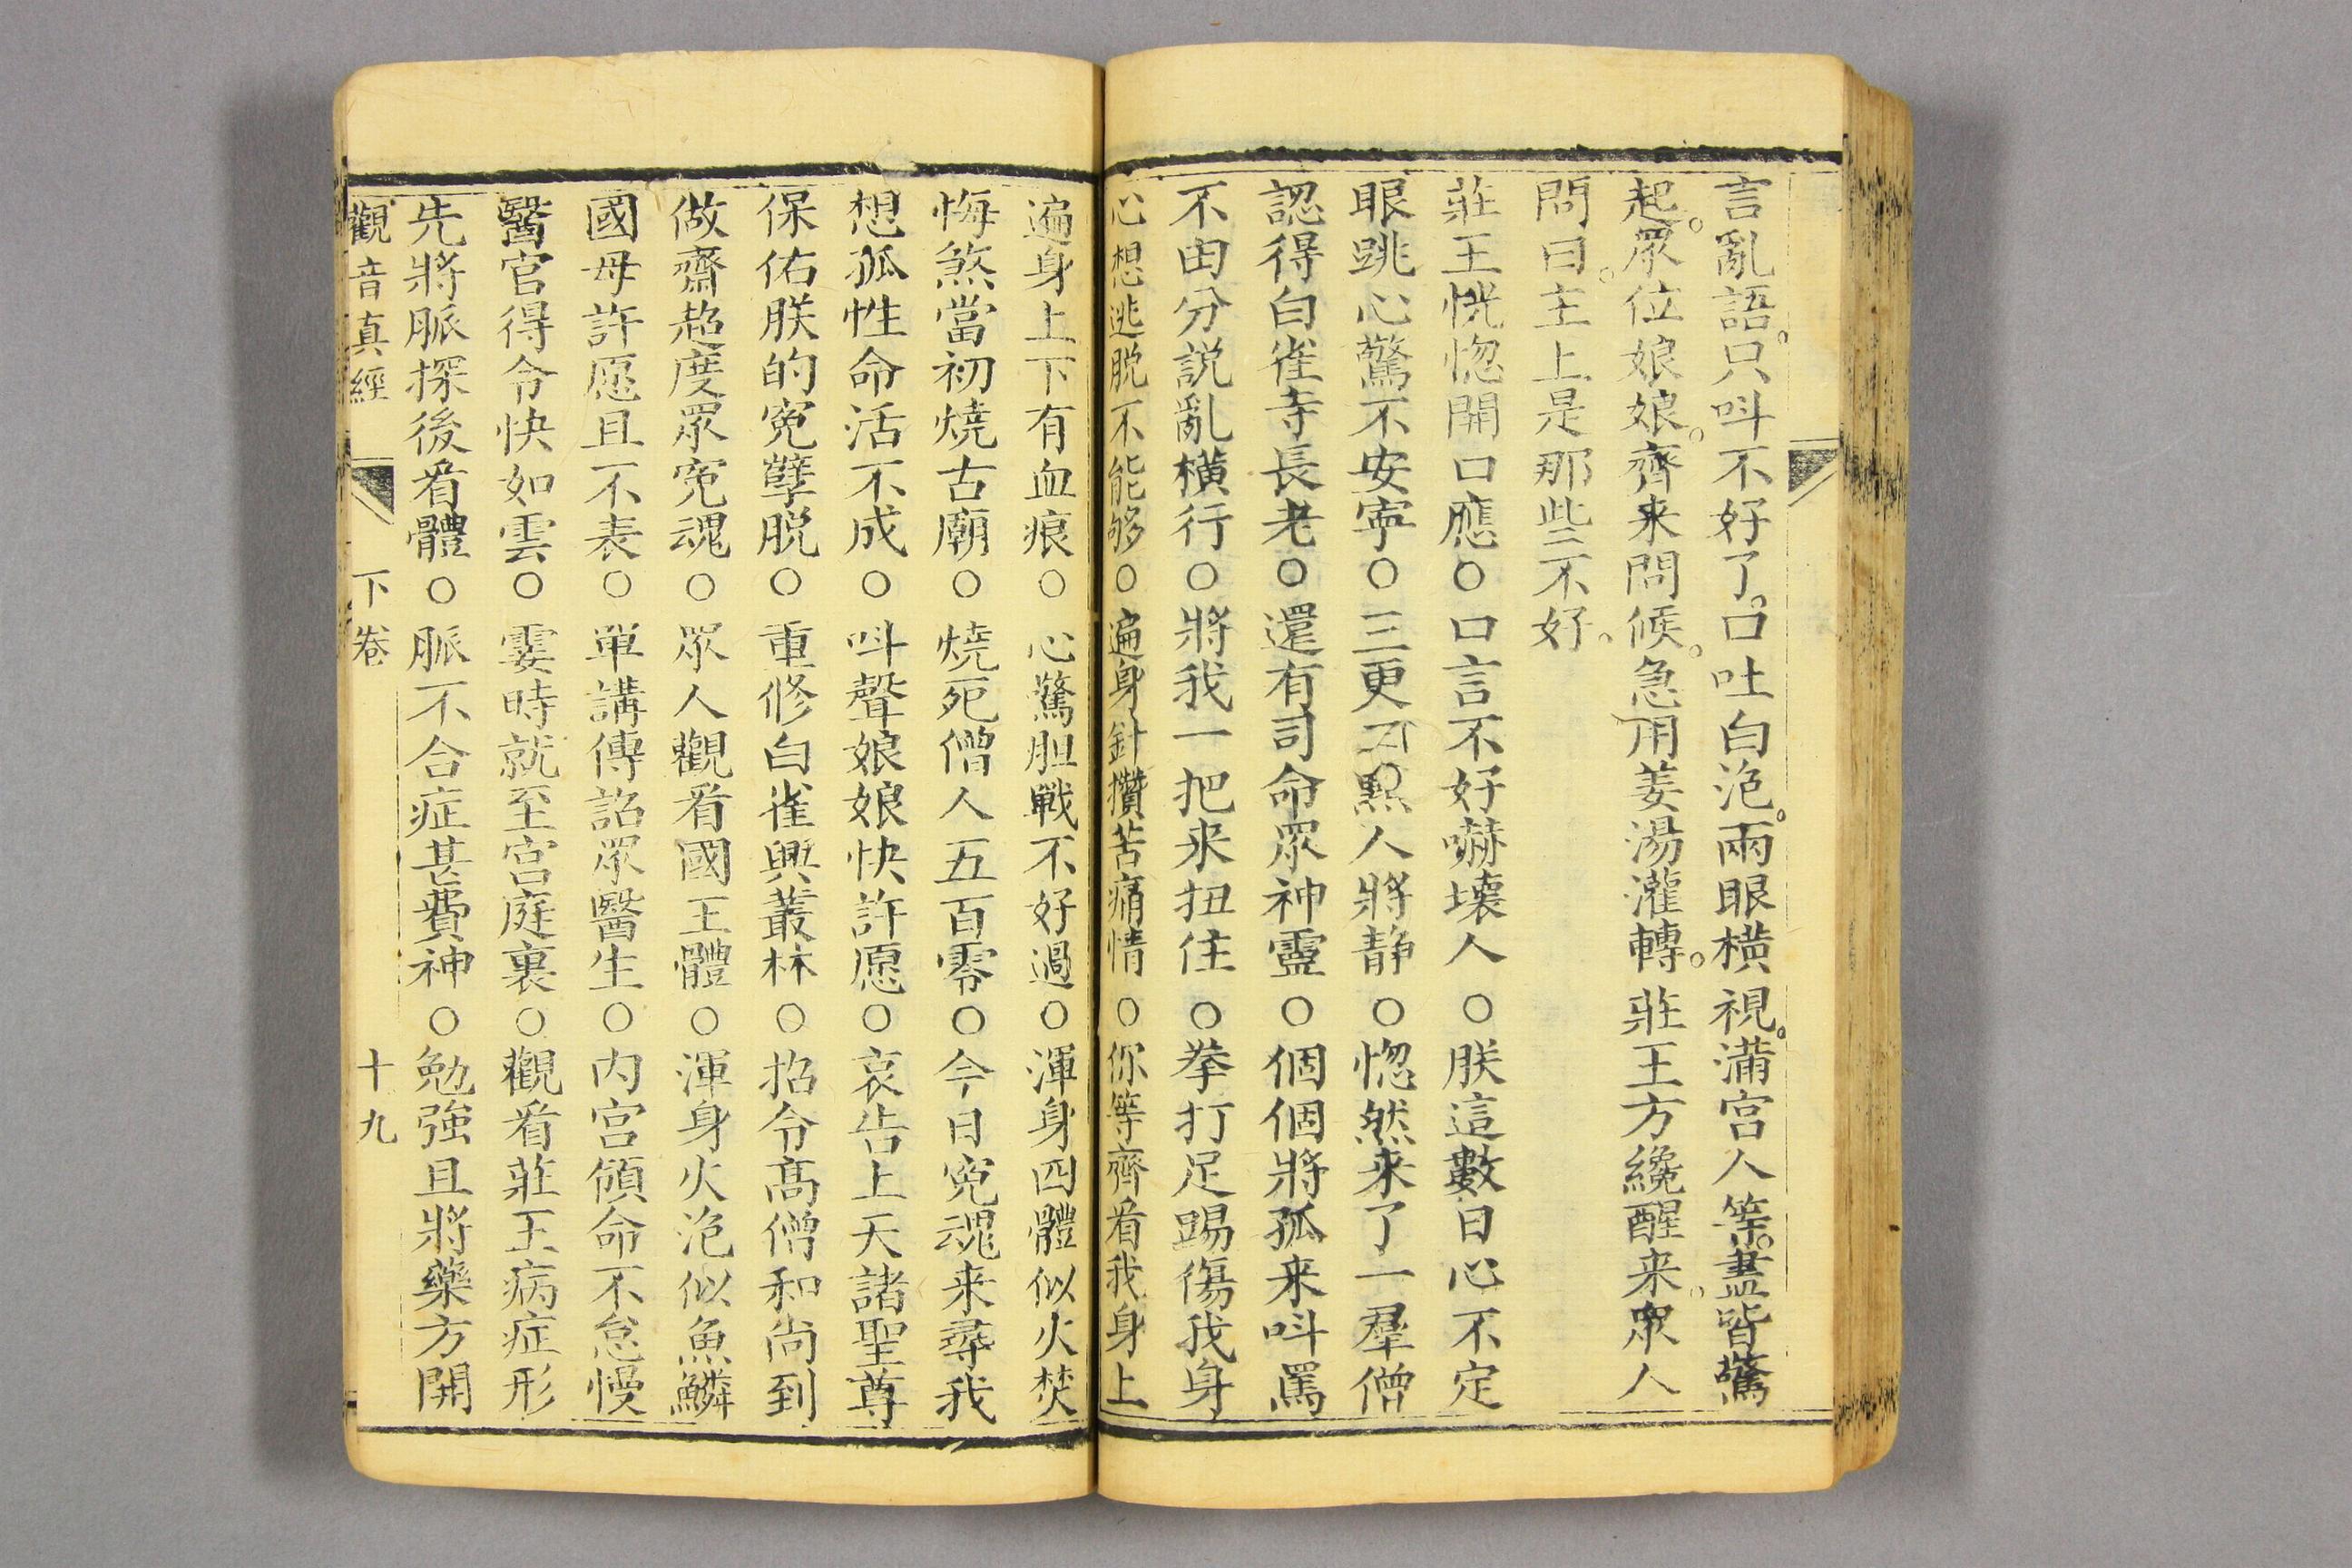 言亂語。只呌不好了。口吐白泡。兩眼橫視。滿宮人等。盡皆驚
起。眾位娘娘。齊来問候。急用姜湯灌轉。莊王方纔醒来。眾人
問曰。主上是那些不好。
莊王恍惚開口應○口言不好嚇壞人○朕這數日心不定
眼跳心驚不安寧○三更 㸃人將静○惚然来了一羣僧
認得白雀寺長老○還有司命眾神靈○個個將孤来呌罵
不由分説亂横行○將我一把来扭住○拳打足踢傷我身
心想逃脱不能够○遍身針攢苦痛情○你等齊看我身上
遍身上下有血痕○心驚胆戰不好過○渾身四體似火焚
悔煞當初燒古廟○燒死僧人五百零○今日寃魂来尋我
想孤性命活不成○呌聲娘娘快許愿○哀告上天諸聖尊
保佑朕的寃孽脱○重修白雀興叢林○招令高僧和尚到
做齋超度眾寃魂○眾人觀看國王體○渾身火泡似魚鱗
國母許愿且不表○单講傳詔眾醫生○内宫領命不怠慢
醫官得令快如雲○霎時就至宫庭裏○觀看莊王病症形
先將脈探後看體○脈不合症甚費神○勉強且將藥方開
觀音真經 下卷 十九